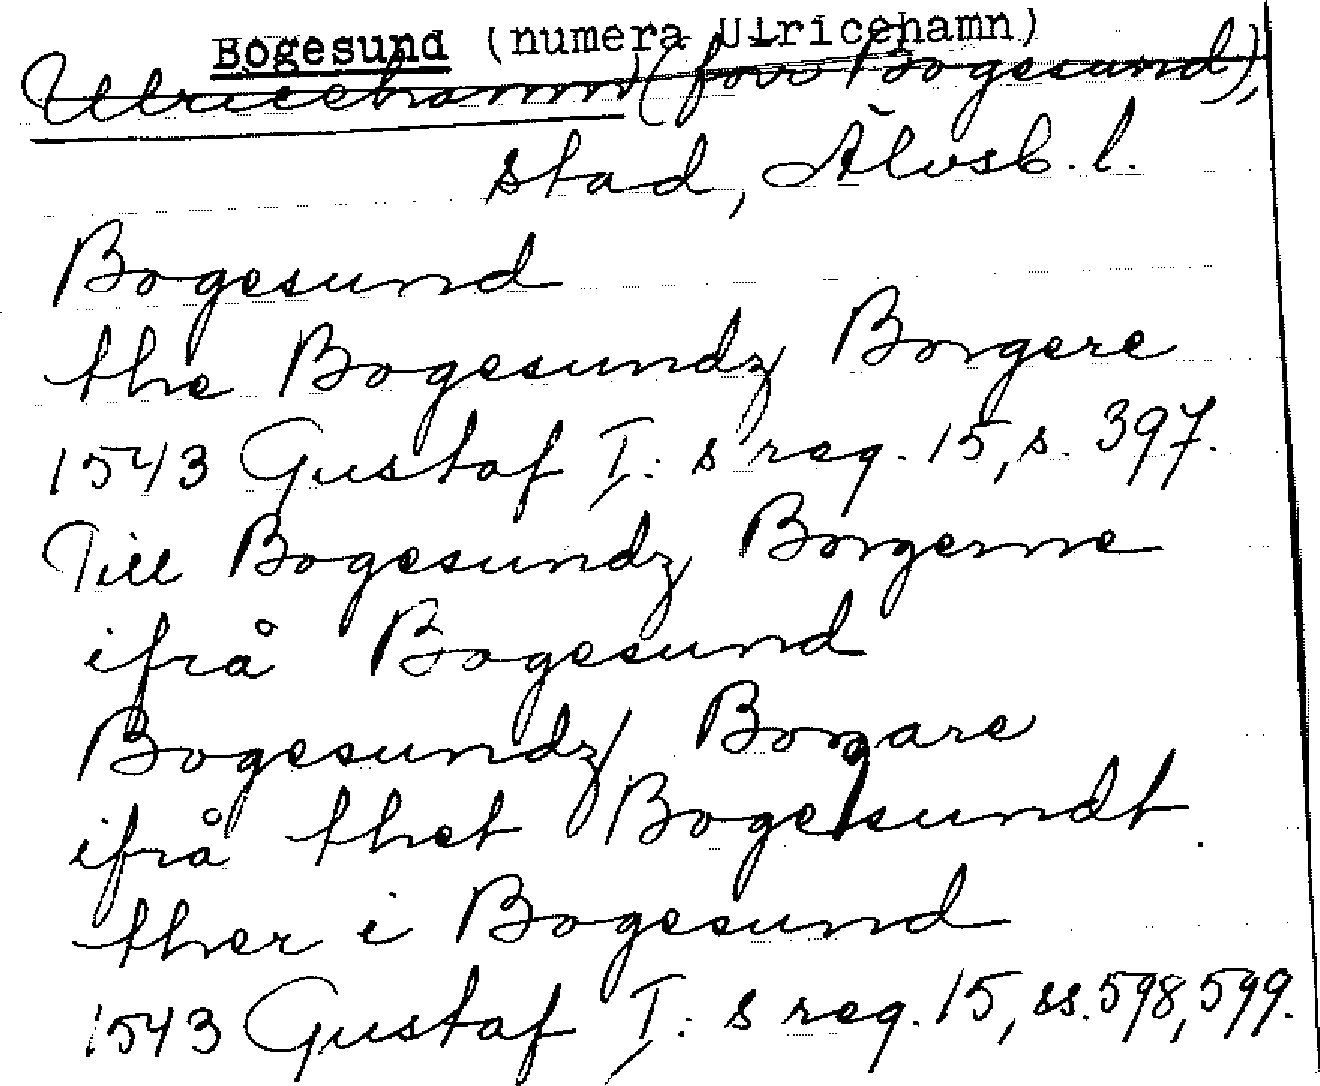 Bogesund (numera Ulricehamn)
Ulricehamn (förr Bogesund),
stad, Älvsb. l.
Bogesund
the Bogesundz Borgere
1543 Gustaf I:s reg. 15, s. 397.
Till Bogesundz Borgerne
ifrå Bogesund
Bogesundz Borgare
ifrå thet Bogesundt
ther i Bogesund
1543 Gustaf I:s reg. 15, ss. 598, 599.